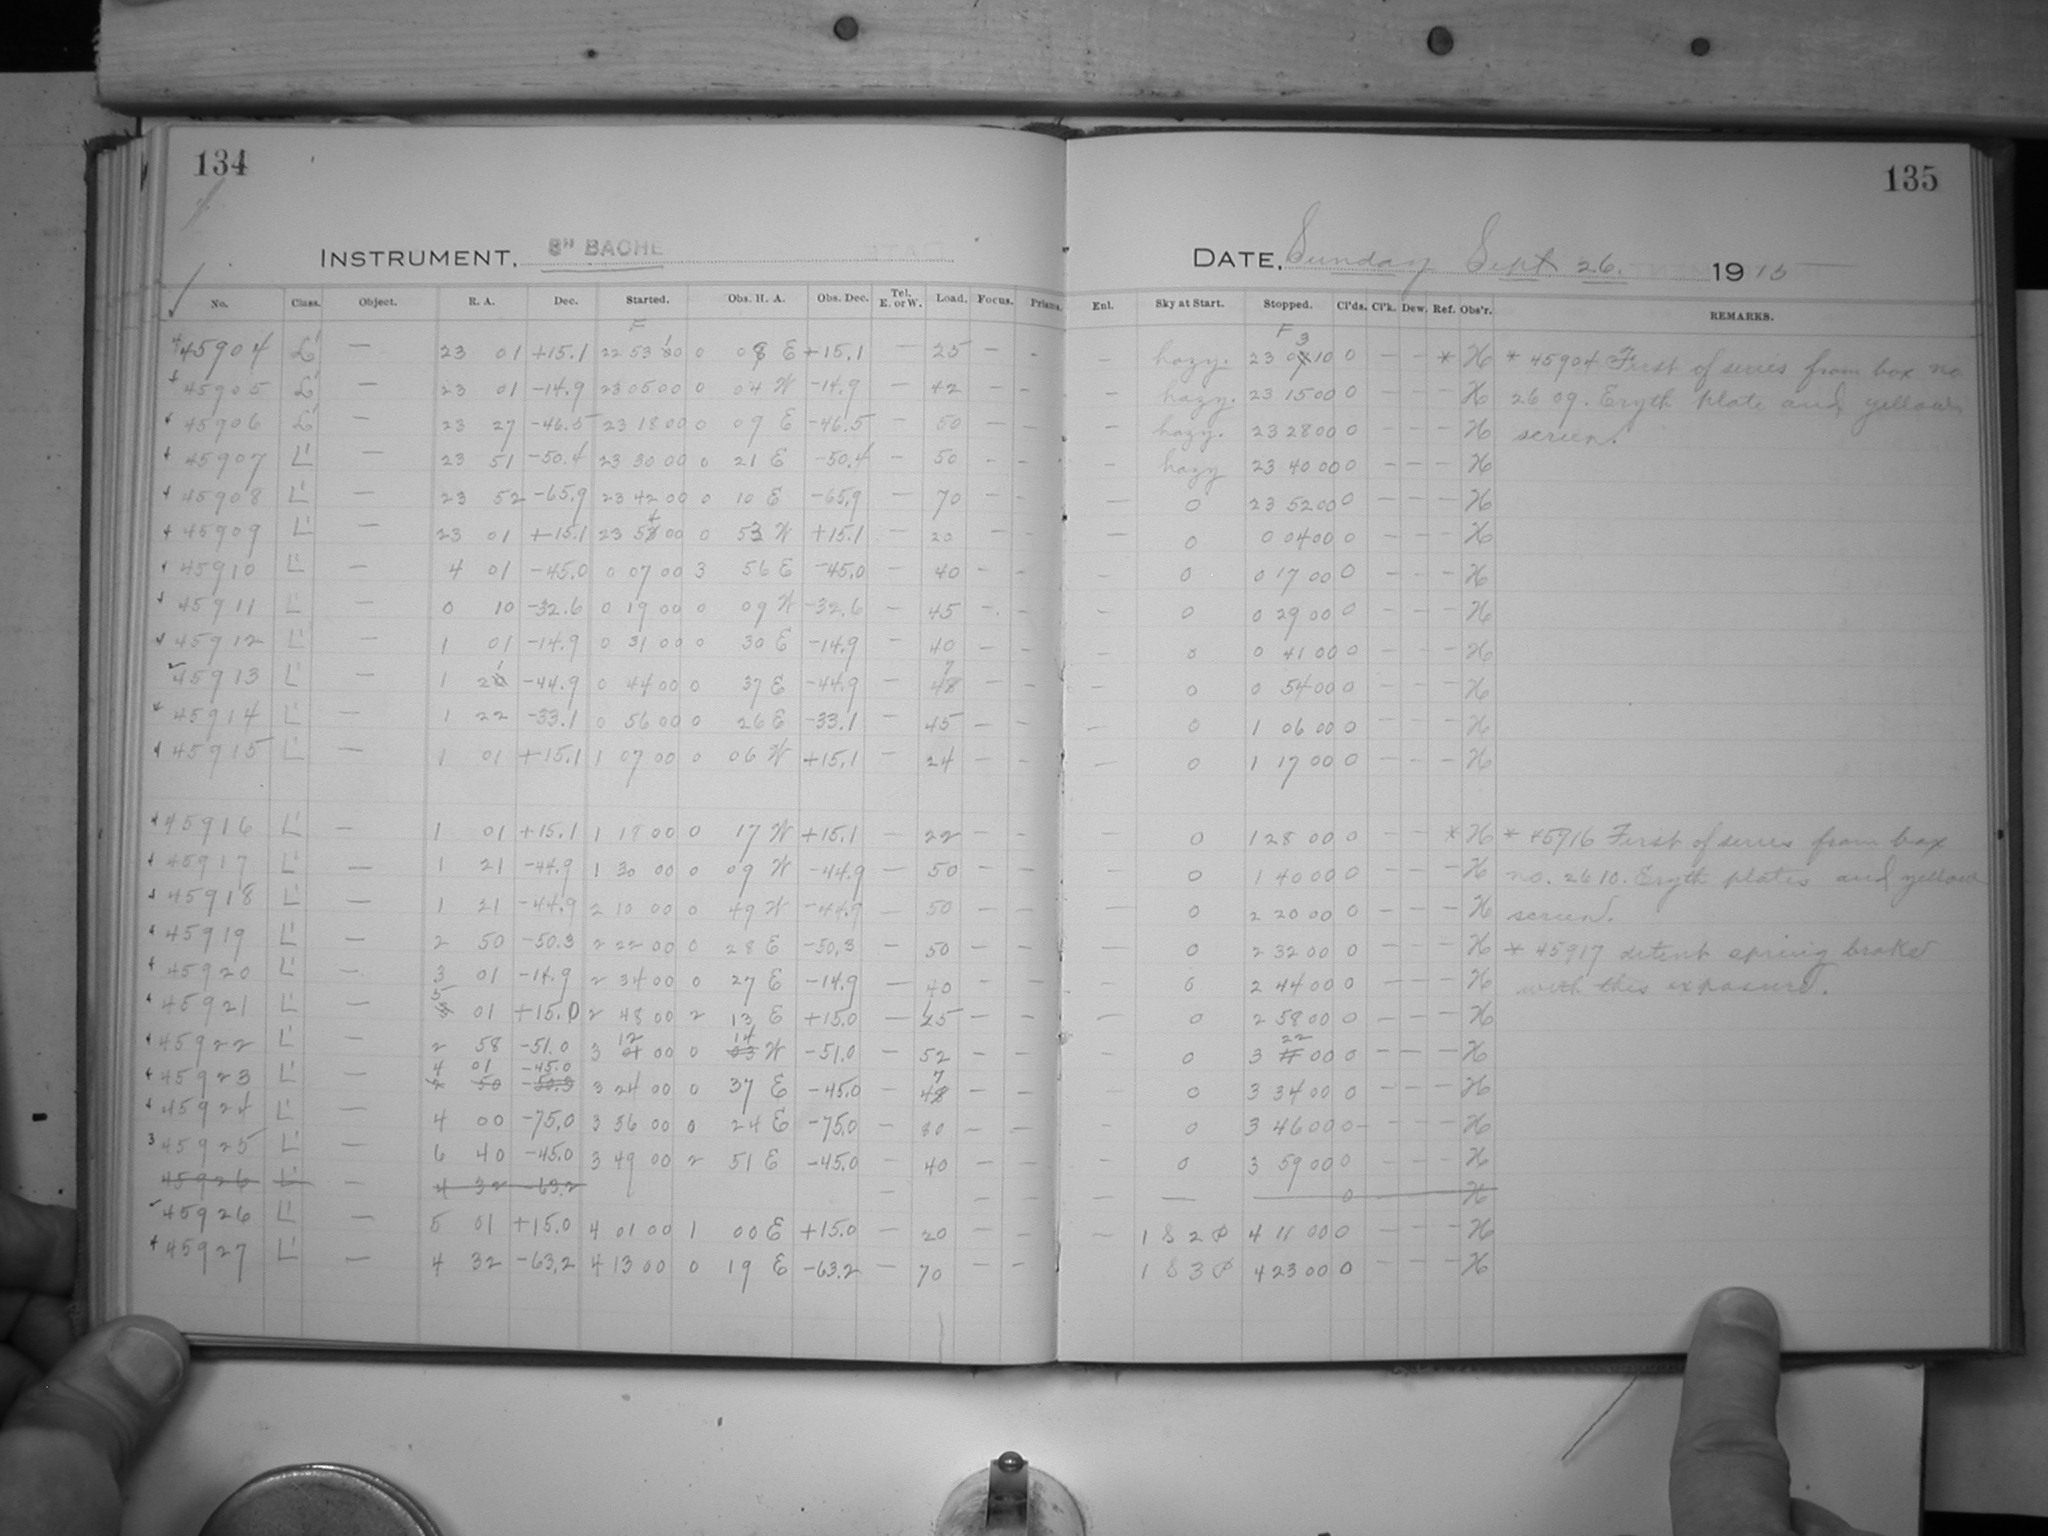 134
135
INSTRUMENT, 8" BACHE
DATE, Sunday Sept 26. 1915
No. Class. Object. R. A. Dec. Started. Obs. H. A. Obs. Dec. Tel. E. or W. Load. Focus. Prisms. Enl. Sky at Start. Stopped. Cl'ds. Cl'k. Dew. Ref. Obs'r. REMARKS.
45904 L' — 23 01 +15.1 22 53 10 0 08 E +15.1 — 25 — — hazy. 23 03 10 0 — — * H * 45904 First of series from box no
45905 L' — 23 01 -14.9 23 05 00 0 04 W -14.9 — 42 — — — hazy. 23 15 00 0 — — — H 26 09. Eryth plate and yellow
45906 L' — 23 27 -46.5 23 18 00 0 09 E -46.5 — 50 — — — hazy. 23 28 00 0 — — — H screen.
45907 L' — 23 51 -50.4 23 30 00 0 21 E -50.4 — 50 — — — hazy 23 40 00 0 — — — H
45908 L' — 23 52 -65.9 23 42 00 0 10 E -65.9 — 70 — — — 0 23 52 00 0 — — — H
45909 L' — 23 01 +15.1 23 54 00 0 53 W +15.1 — 20 — — — 0 0 04 00 0 — — — H
45910 L' — 4 01 -45.0 0 07 00 3 56 E -45.0 — 40 — — — 0 0 17 00 0 — — — H
45911 L' — 0 10 -32.6 0 19 00 0 09 W -32.6 — 45 — — — 0 0 29 00 0 — — — H
45912 L' — 1 01 -14.9 0 31 00 0 30 E -14.9 — 40 — — — 0 0 41 00 0 — — — H
45913 L' — 1 21 -44.9 0 44 00 0 37 E -44.9 — 47 — — — 0 0 54 00 0 — — — H
45914 L' — 1 22 -33.1 0 56 00 0 26 E -33.1 — 45 — — — 0 1 06 00 0 — — — H
45915 L' — 1 01 +15.1 1 07 00 0 06 W +15.1 — 24 — — — 0 1 17 00 0 — — — H
45916 L' — 1 01 +15.1 1 18 00 0 17 W +15.1 — 22 — — 0 1 28 00 0 — — * H * 45916 First of series from box
45917 L' — 1 21 -44.9 1 30 00 0 09 W -44.9 — 50 — — 0 1 40 00 0 — — — H no. 26 10. Eryth plates and yellow
45918 L' — 1 21 -44.9 2 10 00 0 49 W -44.9 — 50 — — — 0 2 20 00 0 — — — H screen.
45919 L' — 2 50 -50.3 2 22 00 0 28 E -50.3 — 50 — — — 0 2 32 00 0 — — — H * 45917 detent spring broke
45920 L' — 3 01 -14.9 2 34 00 0 27 E -14.9 — 40 — — — 0 2 44 00 0 — — — H with this exposure.
45921 L' — 5 01 +15.0 2 48 00 2 13 E +15.0 — 25 — — — 0 2 58 00 0 — — — H
45922 L' — 2 58 -51.0 3 12 00 0 14 W -51.0 — 52 — — 0 3 22 00 0 — — — H
45923 L' — 4 01 -45.0 3 24 00 0 37 E -45.0 — 47 — — — 0 3 34 00 0 — — — H
45924 L' — 4 00 -75.0 3 36 00 0 24 E -75.0 — 80 — — — 0 3 46 00 0 — — — H
45925 L' — 6 40 -45.0 3 49 00 2 51 E -45.0 — 40 — — — 0 3 59 00 0 — — — H
45926 L' — 4 32 -63.2 — — — — — 0 H
45926 L' — 5 01 +15.0 4 01 00 1 00 E +15.0 — 20 — — — 1 S 2 P 4 11 00 0 — — — H
45927 L' — 4 32 -63.2 4 13 00 0 19 E -63.2 — 70 — — 1 S 3 P 4 23 00 0 — — — H